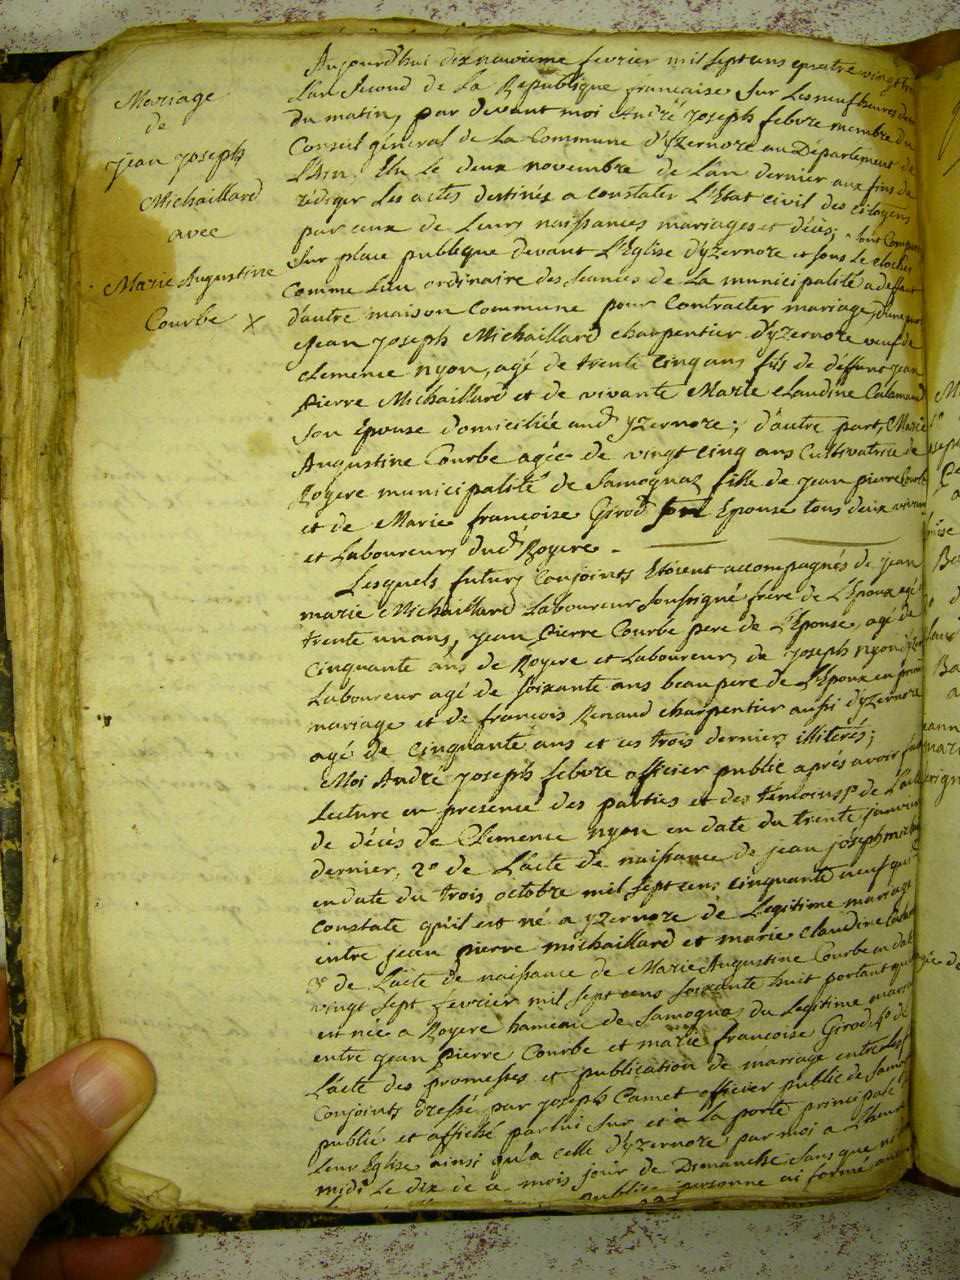 Mariage
de
Jean Joseph
Michaillard
avec
Marie Augustine
Courbe X
Aujourd'hui dix neuvieme fevrier mil sept cens quatre vingt
L'an second de La Republique francaise sur Les neuf heures
du matin, par devant moi André Joseph febvre membre du
Conseil général de La Commune d'yzernore au Département de
L'Ain Elu le deux novembre de L'an dernier aux fins de
rédiger Les actes destinés a constater L'Etat civil des citoyens
par eux de Leurs naissances mariages et décès; sont
Sur place publique devant L'Eglise d'yzernore et sous Le clocher
comme Lieu ordinaire des séances de La municipalité a deffaut
d'autre maison commune pour Contracter mariage, d'une part
Jean Joseph Michaillard charpentier d'yzernore veuf de
Clemence nyon, agé de trente cinq ans fils de deffunt jean
Pierre Michaillard et de vivante Marie Claudine
son épouse domiciliée aud yzernore; d'autre part, Marie
Augustine Courbe agée de vingt cinq ans Cultivatrice de
Royere municipalité de Samognaz fille de jean pierre Courbe
et de Marie francoise Girod son Epouse tous deux vivans
et Laboureurs dud Royere -
Lesquels futurs Conjoints Etoient accompagnés de jean
marie Michaillard Laboureur Soussigné frere de L'Epoux agé
trente un ans, jean Pierre Courbe pere de L'Epouse, agé de
Cinquante ans de Royere et Laboureur, de joseph nyon
Laboureur agé de soixante ans beau pere de L'Epoux en premier
mariage et de françois Renaud charpentier aussi d'yzernore
agé de cinquante ans et ces trois derniers illiterés;
Moi André Joseph febvre officier public après avoir fait
Lecture en presence des parties et des temoins de L'acte
de décès de Clemence nyon en date du trente janvier
dernier, 2º de L'acte de naissance de jean joseph
en date du trois octobre mil sept cens cinquante neuf qui
constate qu'il est né a yzernore de Legitime mariage
entre jean pierre michaillard et marie claudine
3º de L'acte de naissance de Marie Augustine Courbe en date
vingt sept fevrier mil sept cens soixante huit portant qu'elle
est née a Royere hameau de Samognaz du Legitime mariage
entre jean Pierre Courbe et marie francoise Girod, 4º de
L'acte des promesses et publication de mariage entre
Conjoints dressé par joseph Camet officier public de
publié et affiché par lui sur et a la porte principale
Leur Eglise ainsi qu'a celle d'yzernore par moi a L'heure
midi Le dix de ce mois jour de Dimanche sans que
personne ai formé